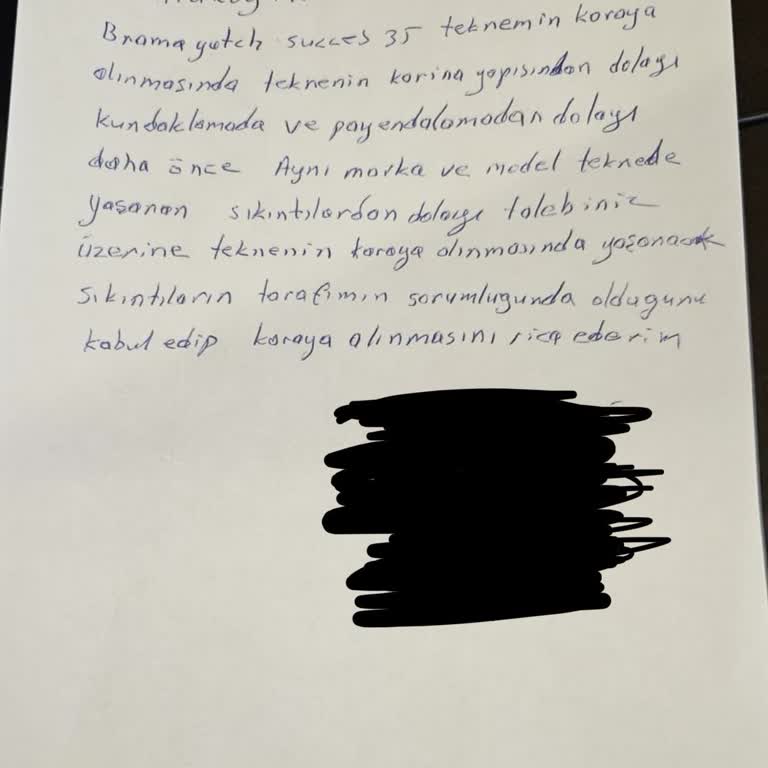 Brama yotch succes 35 teknemin koraya
alınmasında teknenin karina yapısından dolayı
kundaklamada ve payandalamadan dolayı
daha önce Aynı marka ve model teknede
yaşanan sıkıntılardan dolayı talebiniz
üzerine teknenin karaya alınmasında yaşanacak
sıkıntıların tarafımın sorumlugunda oldugunu
kabul edip karaya alınmasını rica ederim